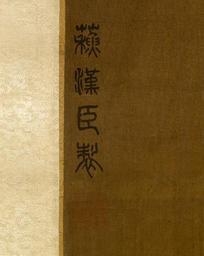 蘇漢臣製